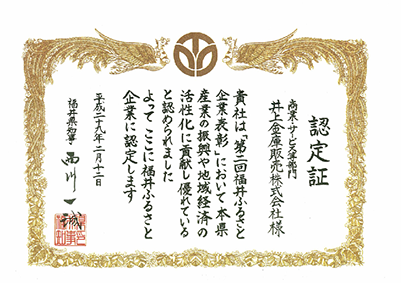 認定証
商業・サービス業部門
井上金庫販売株式会社様
貴社は「第二回福井ふるさと
企業表彰」において本県
産業の振興や地域経済の
活性化に貢献し優れている
と認められました
よって ここに福井ふるさと
企業に認定します
平成二十九年二月十二日
福井県知事 西川一誠